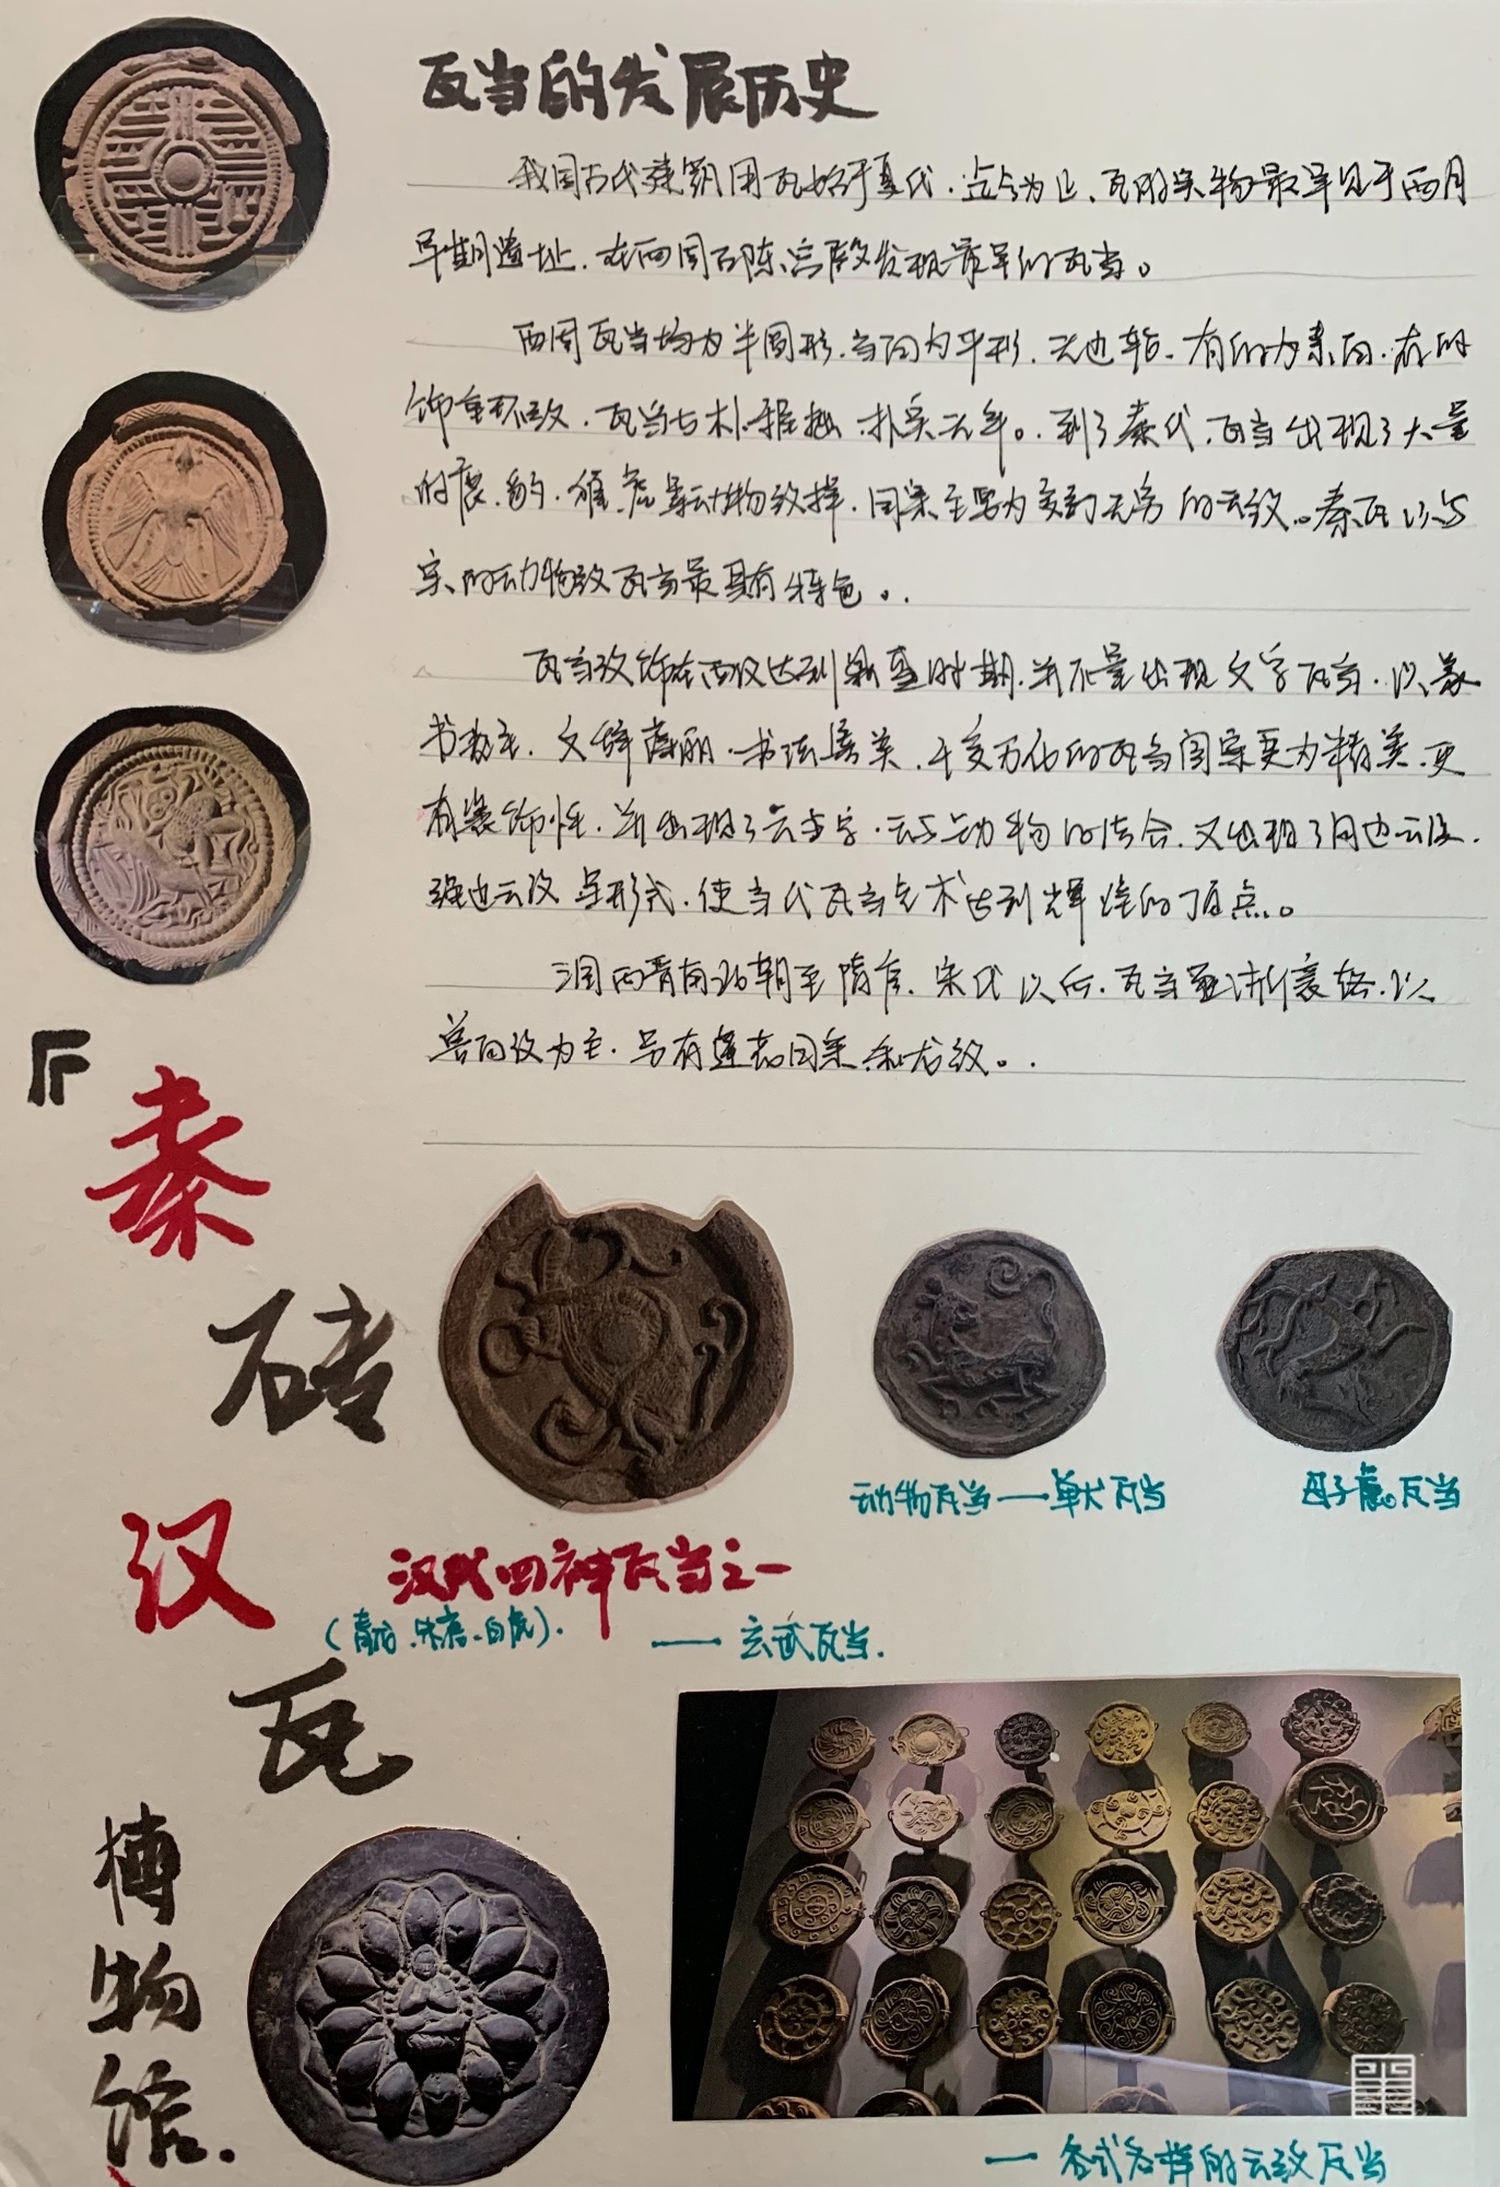 瓦当的发展历史
我国古代建筑用瓦始于夏代.迄今为止、瓦的实物最早见于西周
早期遗址.在西周召陈宫殿发现最早的瓦当。
西周瓦当均为半圆形.当面为平形.无边轮.有的为素面.有的
饰重环纹.瓦当古朴稚拙.朴实无华。到了秦代.瓦当出现了大量
的鹿.豹.雁.虎等动物纹样.图案主要为变幻无穷的云纹。秦瓦以写
实的动物纹瓦当最具有特色。
瓦当纹饰在西汉达到鼎盛时期.并大量出现文字瓦当.以篆
书为主.文辞藻丽.书法秀美.千变万化的瓦当图案更为精美.更
有装饰性.并出现了云与字.云与动物的结合.又出现了网边云纹.
绳边云纹等形式.使当代瓦当艺术达到辉煌的顶点。
三国两晋南北朝至隋唐.宋代以后.瓦当逐渐衰落.以
兽面纹为主.另有莲花图案和龙纹。
秦
砖
汉
瓦
博
物
馆.
动物瓦当——单犬瓦当
母子鹿瓦当
汉代四神瓦当之一
(青龙.朱雀.白虎).
——玄武瓦当.
—各式各样的云纹瓦当